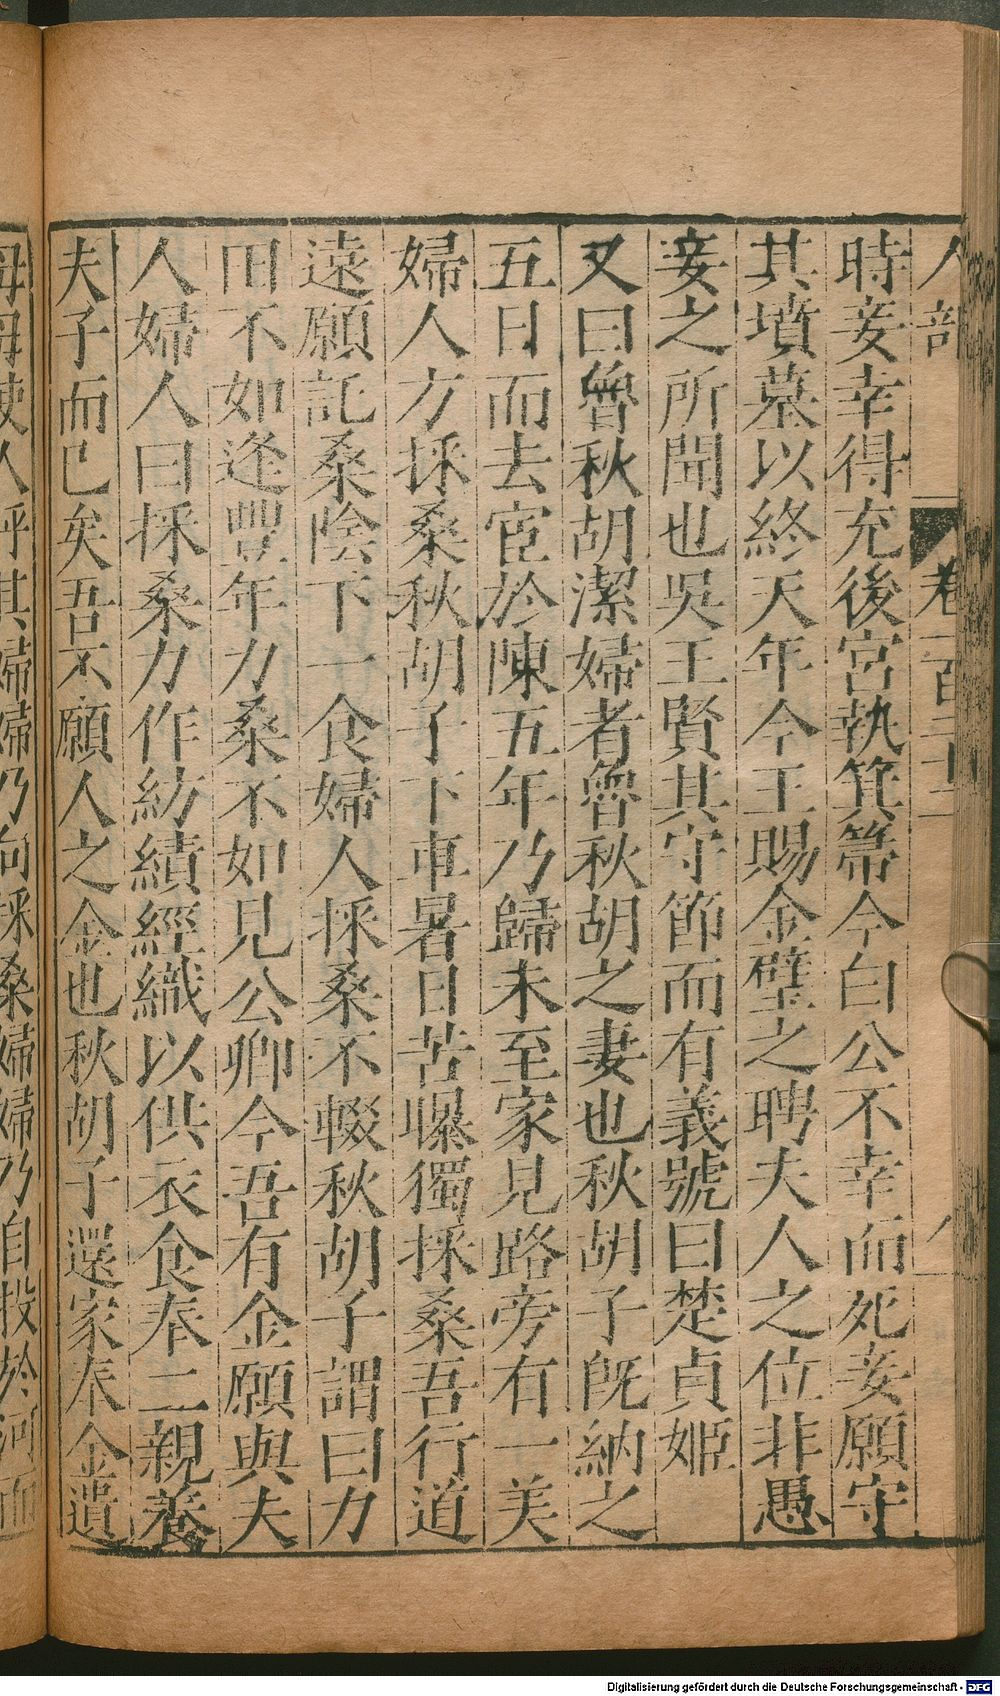 人部
卷
時妾幸得充後宮執箕箒今白公不幸而死妾願守
其墳墓以終天年今王賜金璧之聘夫人之位非愚
妾之所聞也吳王賢其守節而有義號曰楚貞姬
又曰魯秋胡潔婦者魯秋胡之妻也秋胡子旣納之
五日而去宦於陳五年乃歸未至家見路旁有一美
婦人方採桑秋胡子下車暑日苦曝獨採桑吾行道
遠願託桑陰下一食婦人採桑不輟秋胡子謂曰力
田不如逢豐年力桑不如見公卿今吾有金願與夫
人婦人曰採桑力作紡績經織以供衣食奉二親養
夫子而已矣吾不願人之金也秋胡子還家奉金遺
母母使人呼其婦婦乃向採桑婦婦乃自投於河而
Digitalisierung gefördert durch die Deutsche Forschungsgemeinschaft - DFG